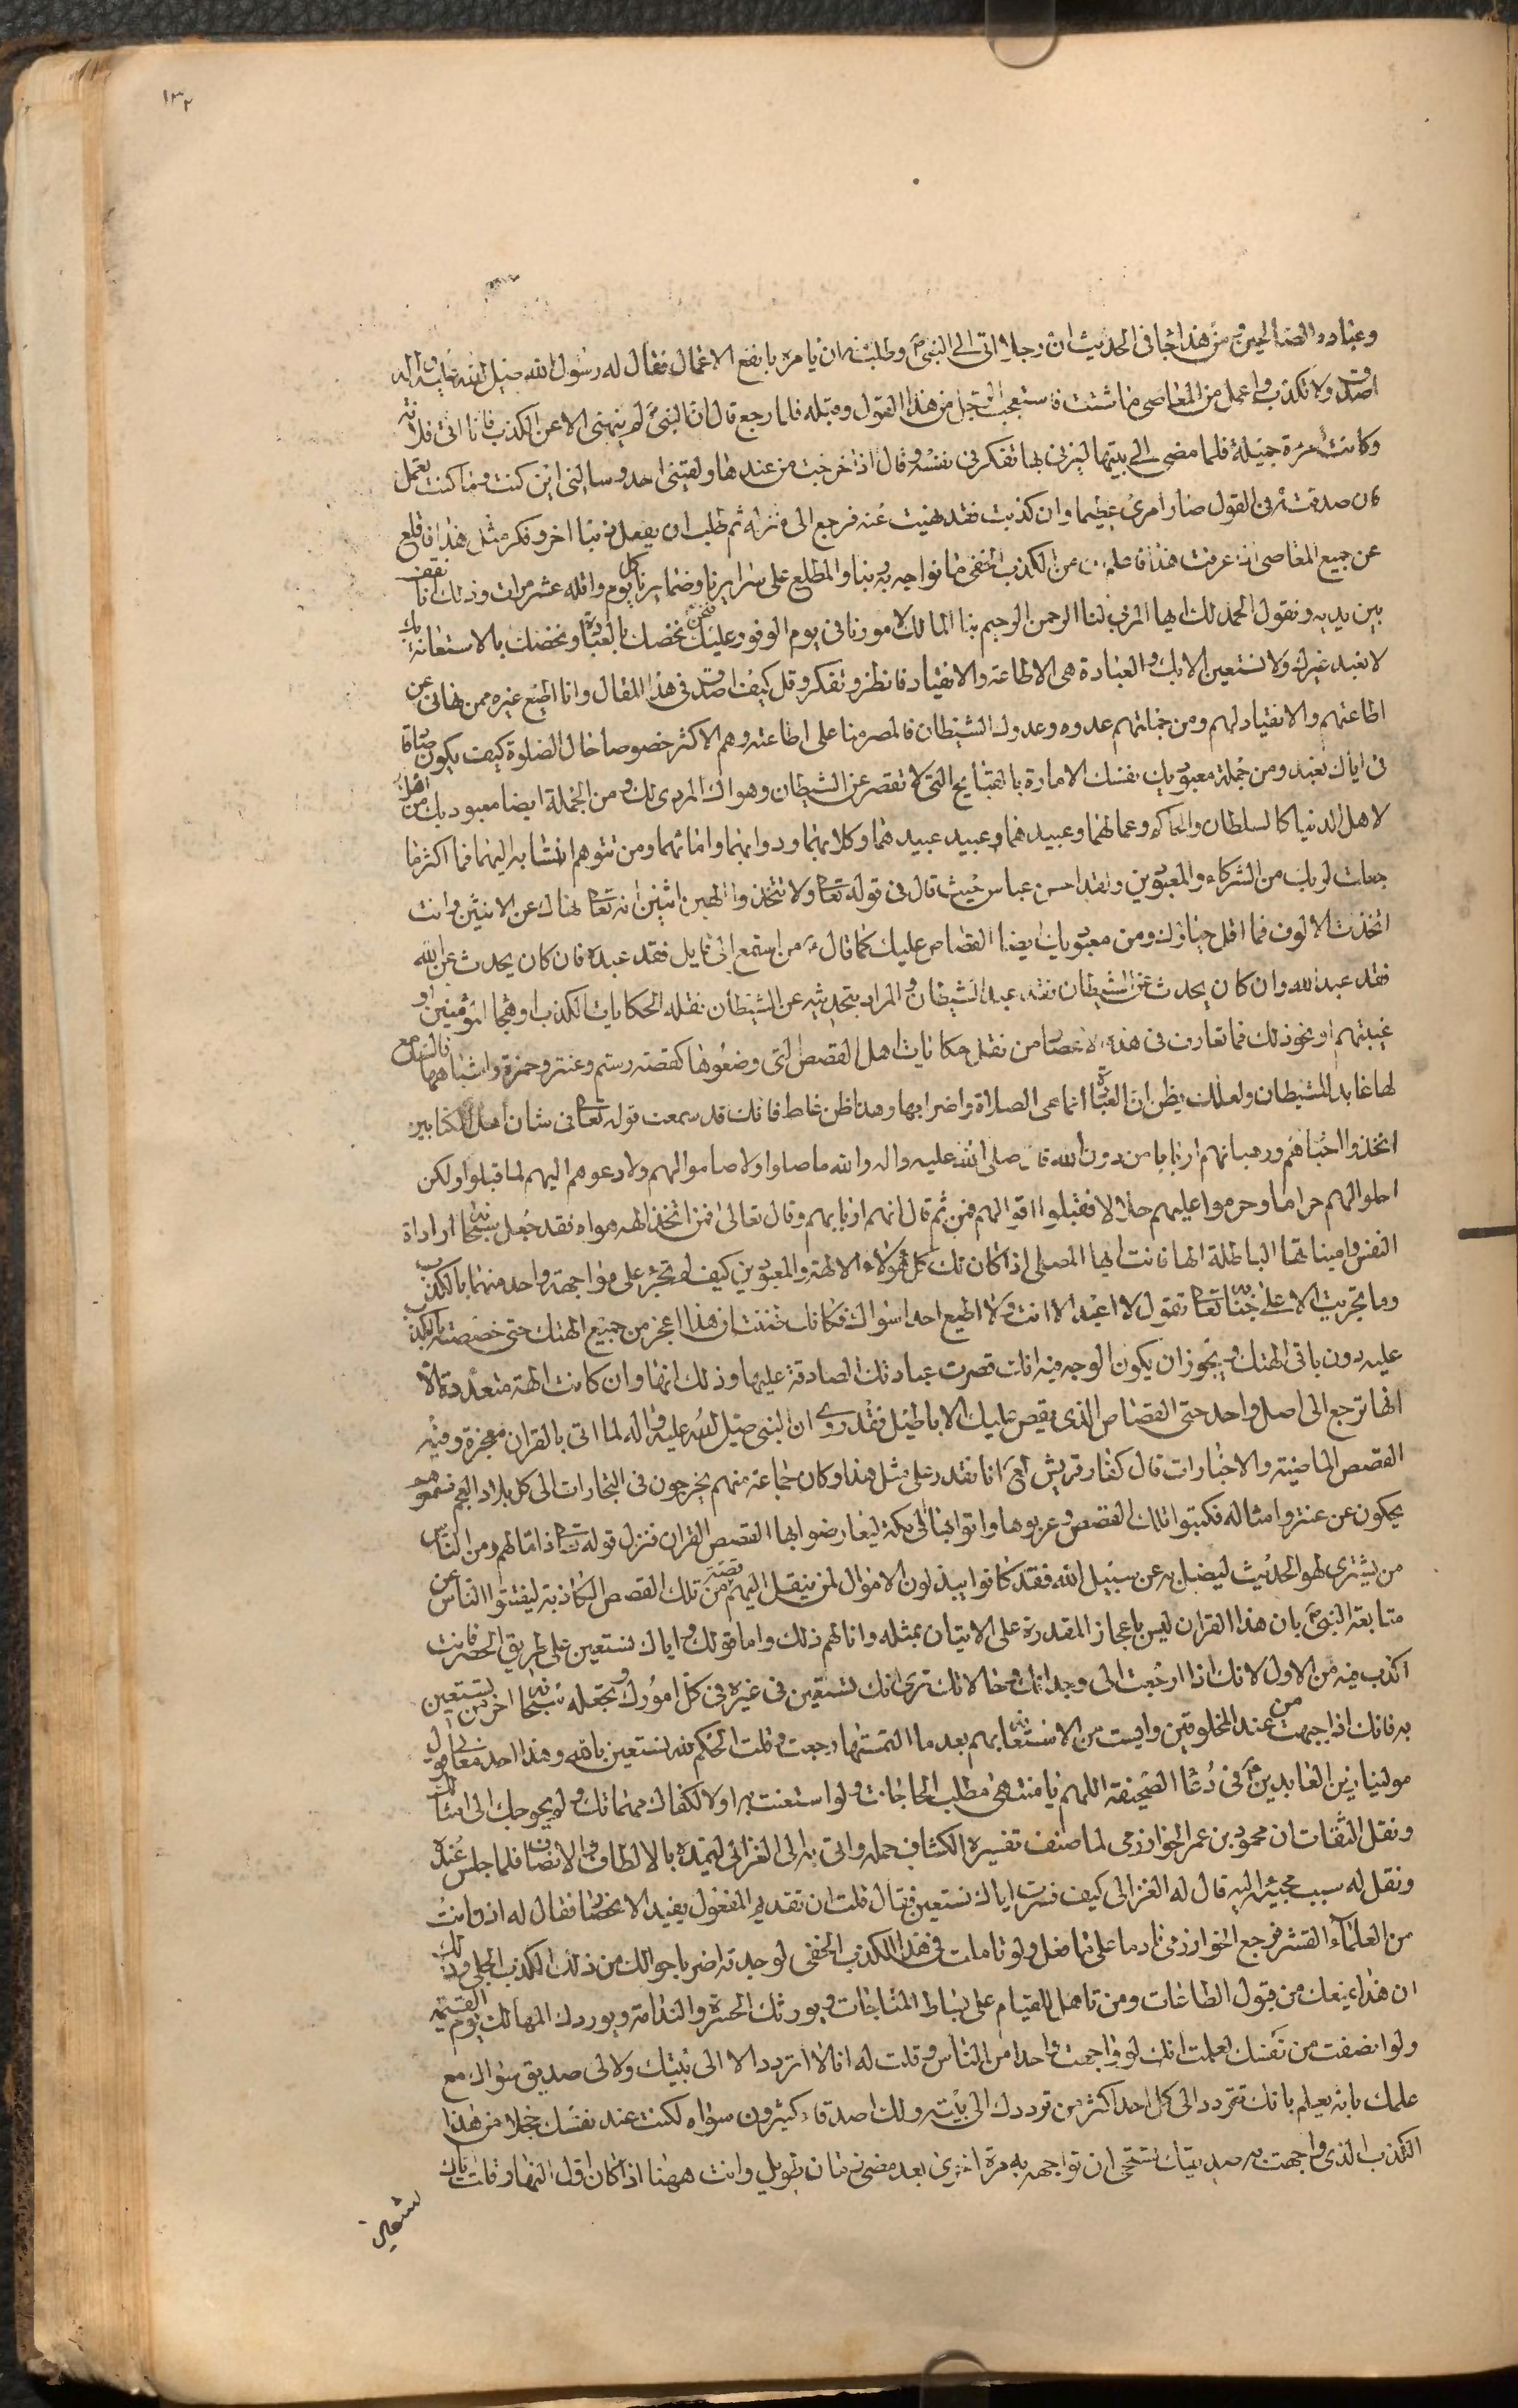 ١٣٢
وعباده الصالحين ومن هذا جا فى الحديث ان رجلا اتى الى النبى ص وطلب منه ان يامره بانفع الاعمال فقال له رسول الله صلى الله عليه واله
اصدق ولا تكذب واعمل من المعاصى ما شئت فاستعجب الرجل من هذا القول وقبله فلما رجع قال ان النبى لم ينهنى الا عن الكذب فانا اتى فلانة
وكانت امرءة جميلة فلما مضى الى بيتها ليزنى بها تفكر فى نفسه وقال اذا خرجت من عندها ولقينى احد وسالنى اين كنت وما كنت تعمل
فان صدقته فى القول صار امرى عظيما وان كذبت فقد نهيت عنه فرجع الى منزله ثم طلب ان يفعل ذنبا اخر وفكر مثل هذا فاقلع
عن جميع المعاصى اذا عرفت هذا فاعلم ان من الكذب الخفى ما نواجه به ربنا والمطلع على سرايرنا وضمايرنا كل يوم واقله عشر مرات وذلك انا نقف
بين يديه ونقول الحمد لك ايها المربى لنا الرحمن الرحيم بنا المالك لامورنا فى يوم الوفود عليك فنحن نخصك بالعبادة ونخصك بالاستعانة بك
لا نعبد غيرك ولا نستعين الا بك والعبادة هى الاطاعة والانقياد فانظر وتفكر وقل كيف اصدق فى هذا المقال وانا اطيع غيره ممن نهانى عن
اطاعتهم والانقياد لهم ومن جملتهم عدوه وعدوك الشيطان فالمصر منا على اطاعته وهم الاكثر خصوصا حال الصلوة كيف يكون صادقا
فى اياك نعبد ومن جملة معبوديك نفسك الامارة بالقبايح التى لا تقصر عن الشيطان وهواك المردى لك ومن الجملة ايضا معبوديك من اهل
لاهل الدنيا كالسلطان والحاكم وعمالهما وعبيدهما وعبيد عبيدهما وكلابهما ودوابهما وامائهما ومن تتوهم انتسابه اليهما فما اكثر ما
جعلت لربك من الشركاء والمعبودين ولقد احسن عباس حيث قال فى قوله تعا ولا تتخذوا الهين اثنين انه تعا نهاك عن الاثنين وانت
اتخذت الالوف فما اقل حياؤك ومن معبوديك ايضا القصاص عليك كما قال من استمع الى قايل فقد عبده فان كان يحدث عن الله
فقد عبد الله وان كان يحدث عن الشيطان فقد عبد الشيطان والمراد بتحديثه عن الشيطان نقله الحكايات الكذب او هجا المؤمنين او
غيبتهم او نحو ذلك فما تعارف فى هذه الاعصار من نقل حكايات اهل القصص التى وضعوها كقصة رستم وعنتر وحمزة واشباهها فالسامع
لها عابد للشيطان ولعلك تظن ان العبادة انما هى الصلاة واضرابها وهذا ظن غلط فانك قد سمعت قوله تعا فى شان اهل الكتابين
اتخذوا احبارهم ورهبانهم اربابا من دون الله قال صلى الله عليه واله والله ما صلوا ولا صاموا لهم ولا دعوهم اليهم لما قبلوا ولكن
احلوا لهم حراما وحرموا عليهم حلالا فقبلوا اقوالهم فمن ثم قال انهم اربابهم وقال تعالى افمن اتخذ الهه هواه فقد جعل سبحانه ارادة
النفس واميناتها الباطلة الها فانت ايها المصلى اذا كان لك كل هؤلاء الالهة والمعبودين كيف لم تجتر على مواجهة واحد منهما بالكذب
وما تجريت الا على جنابه تعا تقول لا اعبد الا انت ولا اطيع احدا سواك فكانك ظننت ان هذا اعجز من جميع الهتك حتى خصصته بالكذب
عليه دون باقى الهتك ويجوز ان يكون الوجه فيه انك قصرت عبادتك الصادقة عليها وذلك انها وان كانت الهة متعددة الا
انها ترجع الى اصل واحد حتى القصاص الذى يقص عليك الاباطيل فقد روى ان النبى صلى الله عليه واله لما اتى بالقران معجزة وفيه
القصص الماضية والاخبارات قال كفار قريش انا نقدر على مثل هذا وكان جماعة منهم يخرجون فى التجارات الى كل بلاد العجم فسمعوهم
يحكون عن عنتر وامثاله فكتبوا تلك القصص وعربوها واتوا بها الى مكة ليعارضوا بها القصص القران فنزل قوله تعا ذاما لهم ومن الناس
من يشترى لهو الحديث ليضل به عن سبيل الله فقد كانوا يبذلون الاموال لمن ينقل اليهم قصة من تلك القصص الكاذبة ليفتتوا الناس عن
متابعة النبى ص بان هذا القران ليس باعجاز المقدرة على الاتيان بمثله وانا لهم ذلك واما قولك واياك نستعين على طريق الحصر فانت
اكذب فيه من الاول لانك اذا راجعت الى وجدانك وحالاتك ترى انك تستعين فى غيره فى كل امورك وتجعله سبحانه اخر من تستعين
به فانك اذا جبهت من عند المخلوقين وايست من الاستعانة بهم بعد ما التمستها رجعت وقلت الحكم لله نستعين بالله وهذا احد معانى قول
مولينا زين العابدين ع فى دعا الصحيفة اللهم يا منتهى مطلب الحاجات ولو استعنت به اولا لكفاك مهماتك ولم يحوجك الى امثالك
ونقل الثقات ان محمود بن عمر الخوارزمى لما صنف تفسيره الكشاف حمله واتى به الى الغزالى ليتمده بالالطاف والانصاف فلما جلس عنده
ونقل له سبب مجيئه اليه قال له الغزالى كيف فسرت اياك نستعين فقال قلت ان تقديم المفعول يفيد الانحصار فقال له اذا وانت
من العلماء القشر فرجع الخوارزمى نادما على ما فعل ولو تاملت فى هذا الكذب الخفى لوجدته اضر باحوالك من ذلك الكذب الجلى وذلك
ان هذا يمنعك من قبول الطاعات ومن تاهل للقيام على بساط المناجات ويورثك الحسرة والندامة ويوردك المهالك يوم القيمه
ولو انصفت من نفسك لعلمت انك لو واجهت واحدا من الناس وقلت له انا لا اتردد الا الى بيتك ولا لى صديق سواك مع
علمك بانه يعلم بانك تتردد الى كل احد اكثر من ترددك الى بيته ولك اصدقاء كثيرون سواه لكنت عند نفسك خجلا من هذا
الكذب الذى واجهت به صديقك تستحى ان تواجهه به مرة اخرى بعد مضى زمان طويل وانت ههنا اذا كان اول النهار وقلت اياك
نستعين